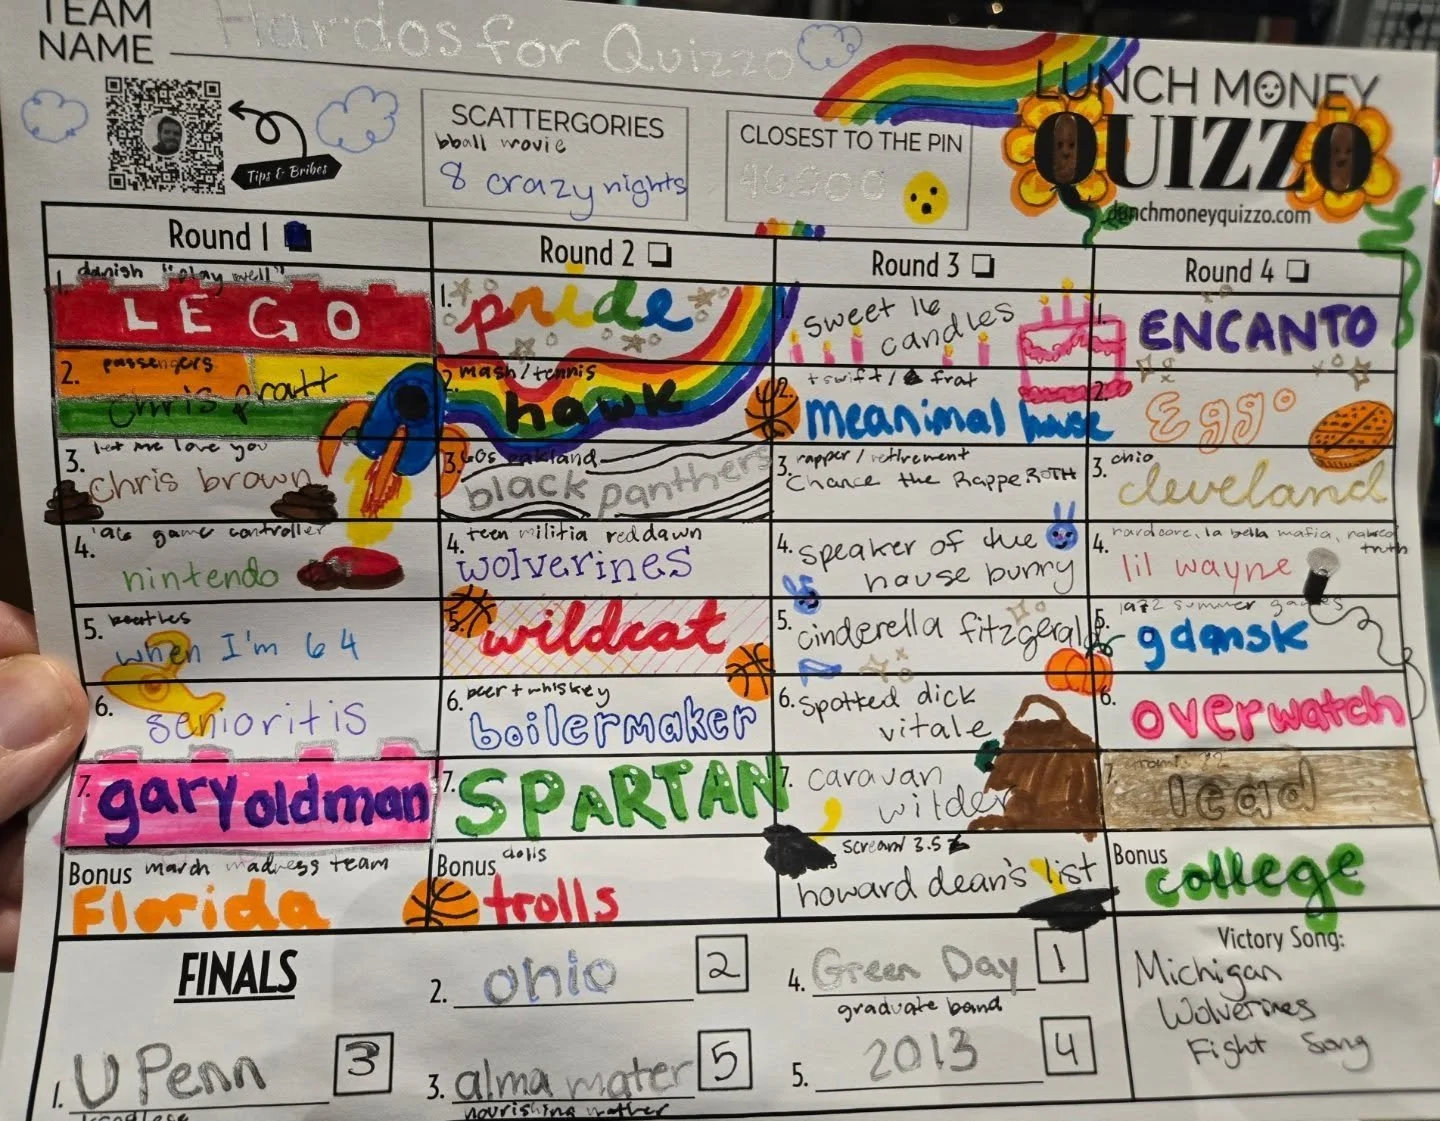 TEAM
NAME
Hardos for Quizzo
Tips & Bribes
SCATTERGORIES
bball movie
8 crazy nights
CLOSEST TO THE PIN
46,000
LUNCH MONEY
QUIZZO
lunchmoneyquizzo.com
Round 1
1. danish "play well"
LEGO
2. passengers
chris pratt
3. let me love you
chris brown
4. '96 game controller
nintendo
5. beatles
when I'm 64
6.
senioritis
7. gary oldman
Bonus march madness team
Florida
Round 2
1. pride
2. mash/tennis
hawk
3. 60s oakland
black panthers
4. teen militia red dawn
wolverines
5. wildcat
6. beer + whiskey
boilermaker
7. SPARTAN
Bonus dolls
trolls
Round 3
1. sweet 16
candles
2. t swift / frat
meanimal house
3. rapper / retirement
Chance the Rappe ROTH
4. speaker of the
house bunny
5. cinderella fitzgerald
6. spotted dick
vitale
7. caravan
wilder
scream 3.5
howard dean's list
Round 4
1. ENCANTO
2. Eggo
3. ohio
cleveland
4. hardcore, la bella mafia, naked
truth
lil wayne
5. summer games
gdansk
6. overwatch
7.
lead
Bonus
college
FINALS
1. U Penn 3
2. ohio 2
3. alma mater 5
nourishing mother
4. Green Day 1
graduate band
5. 2013 4
Victory Song:
Michigan
Wolverines
Fight Song